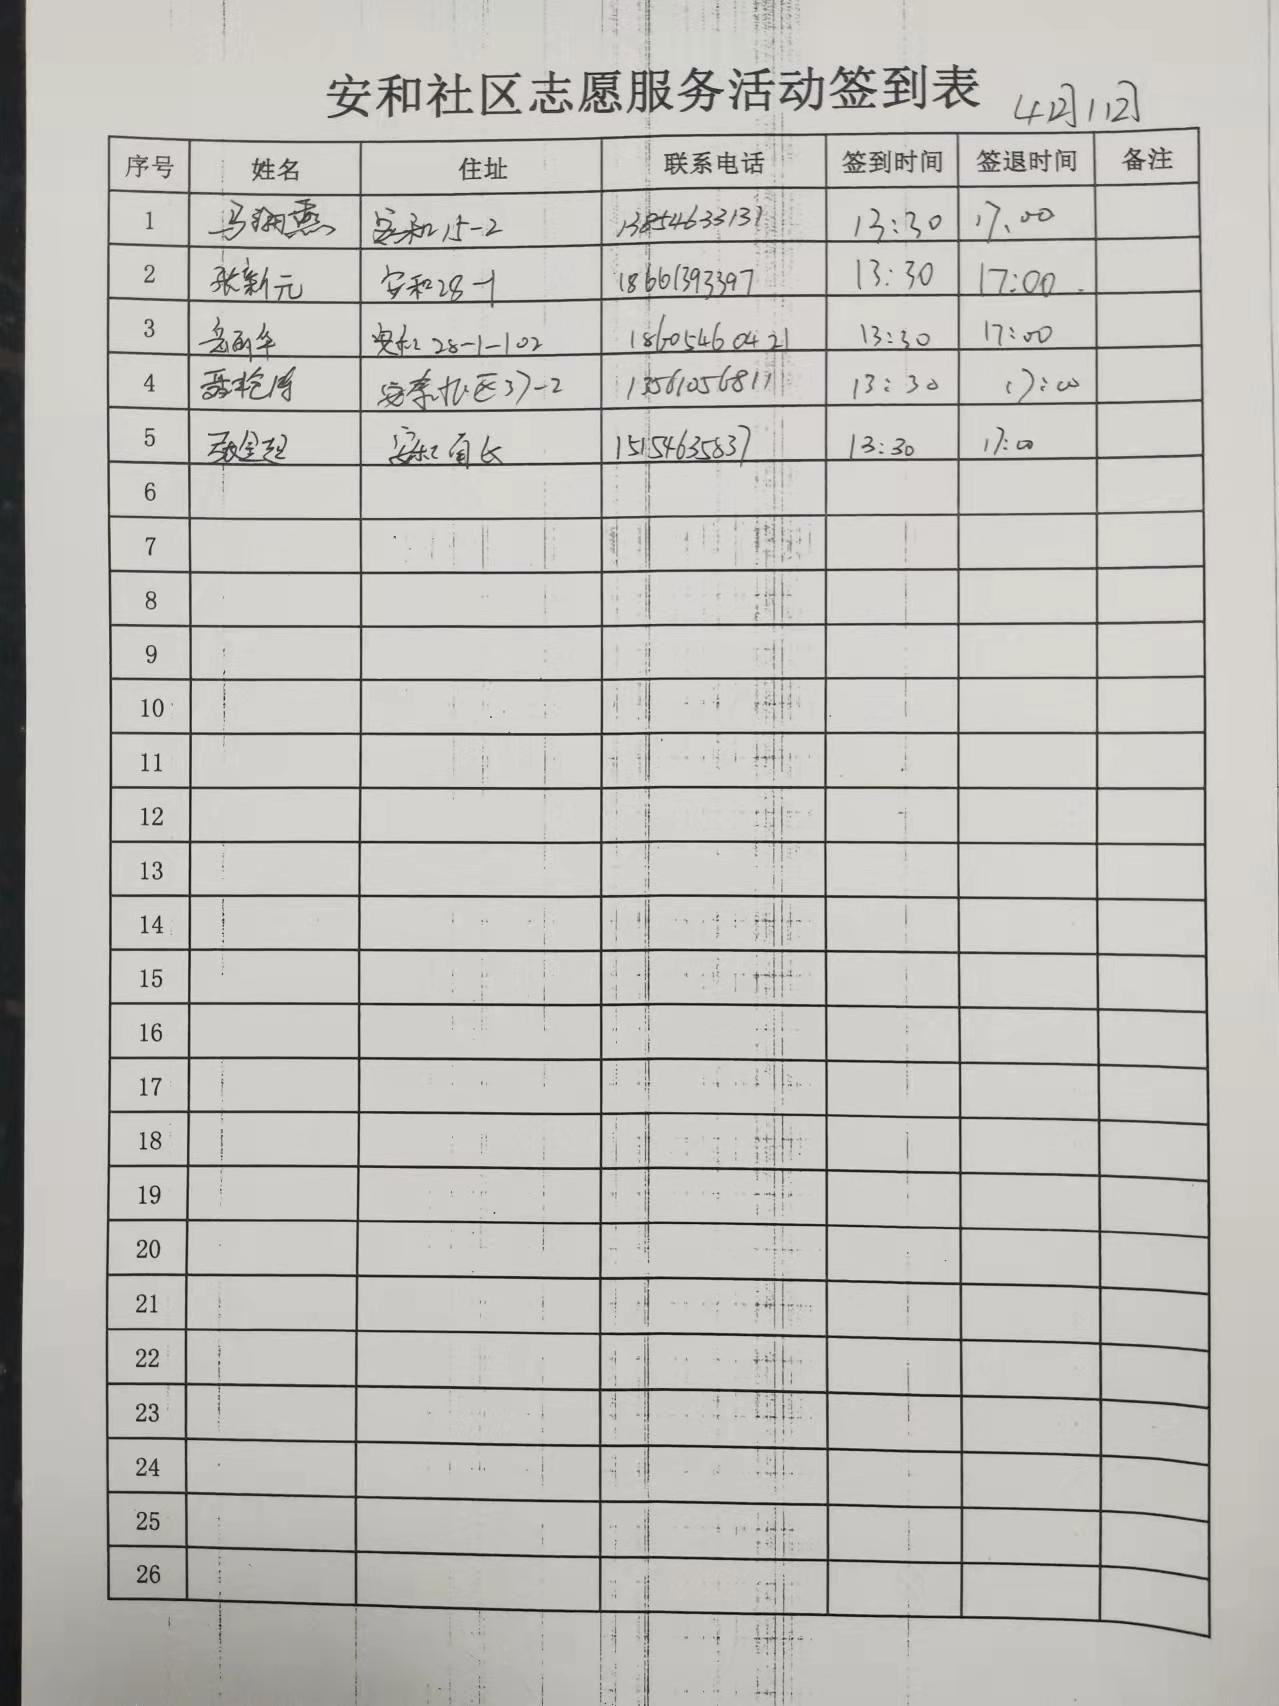 安和社区志愿服务活动签到表 4月1日
序号 姓名 住址 联系电话 签到时间 签退时间 备注
1 马翔燕 安和15-2 13854633131 13:30 17:00
2 张新元 安和28-1 18661393397 13:30 17:00
3 安和28-1-102 18605460421 13:30 17:00
4 区37-2 13561056811 13:30 17:00
5 安和 15154635837 13:30 17:00
6
7
8
9
10
11
12
13
14
15
16
17
18
19
20
21
22
23
24
25
26